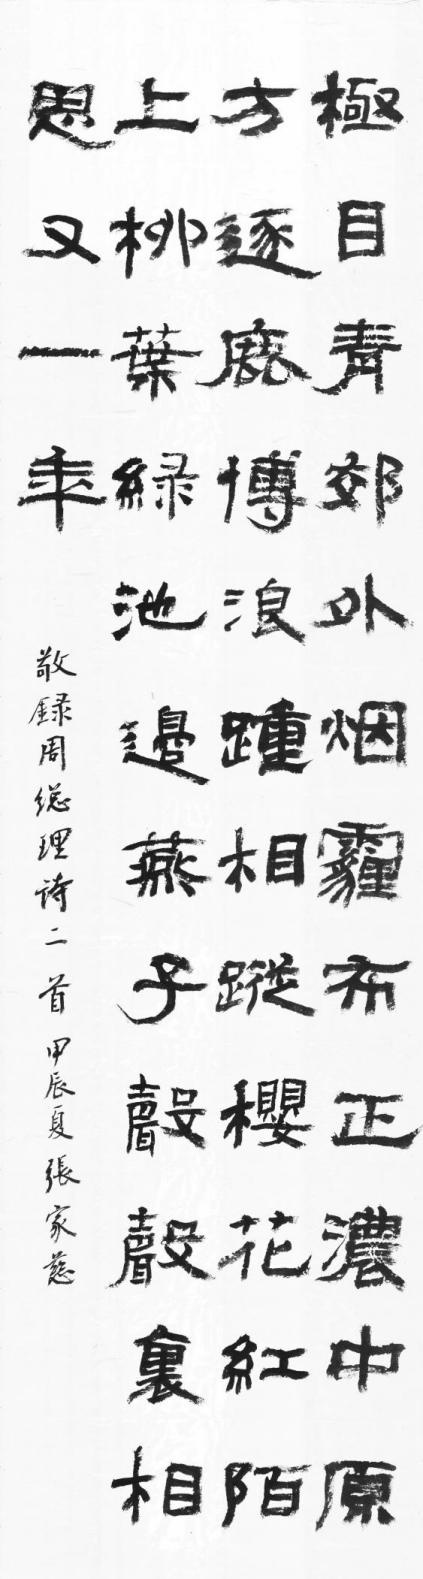 極目青郊外烟霾布正濃中原
方逐鹿博浪踵相蹤櫻花紅陌
上柳葉綠池邊燕子聲聲裏相
思又一年
敬録周總理詩二首甲辰夏張家慈